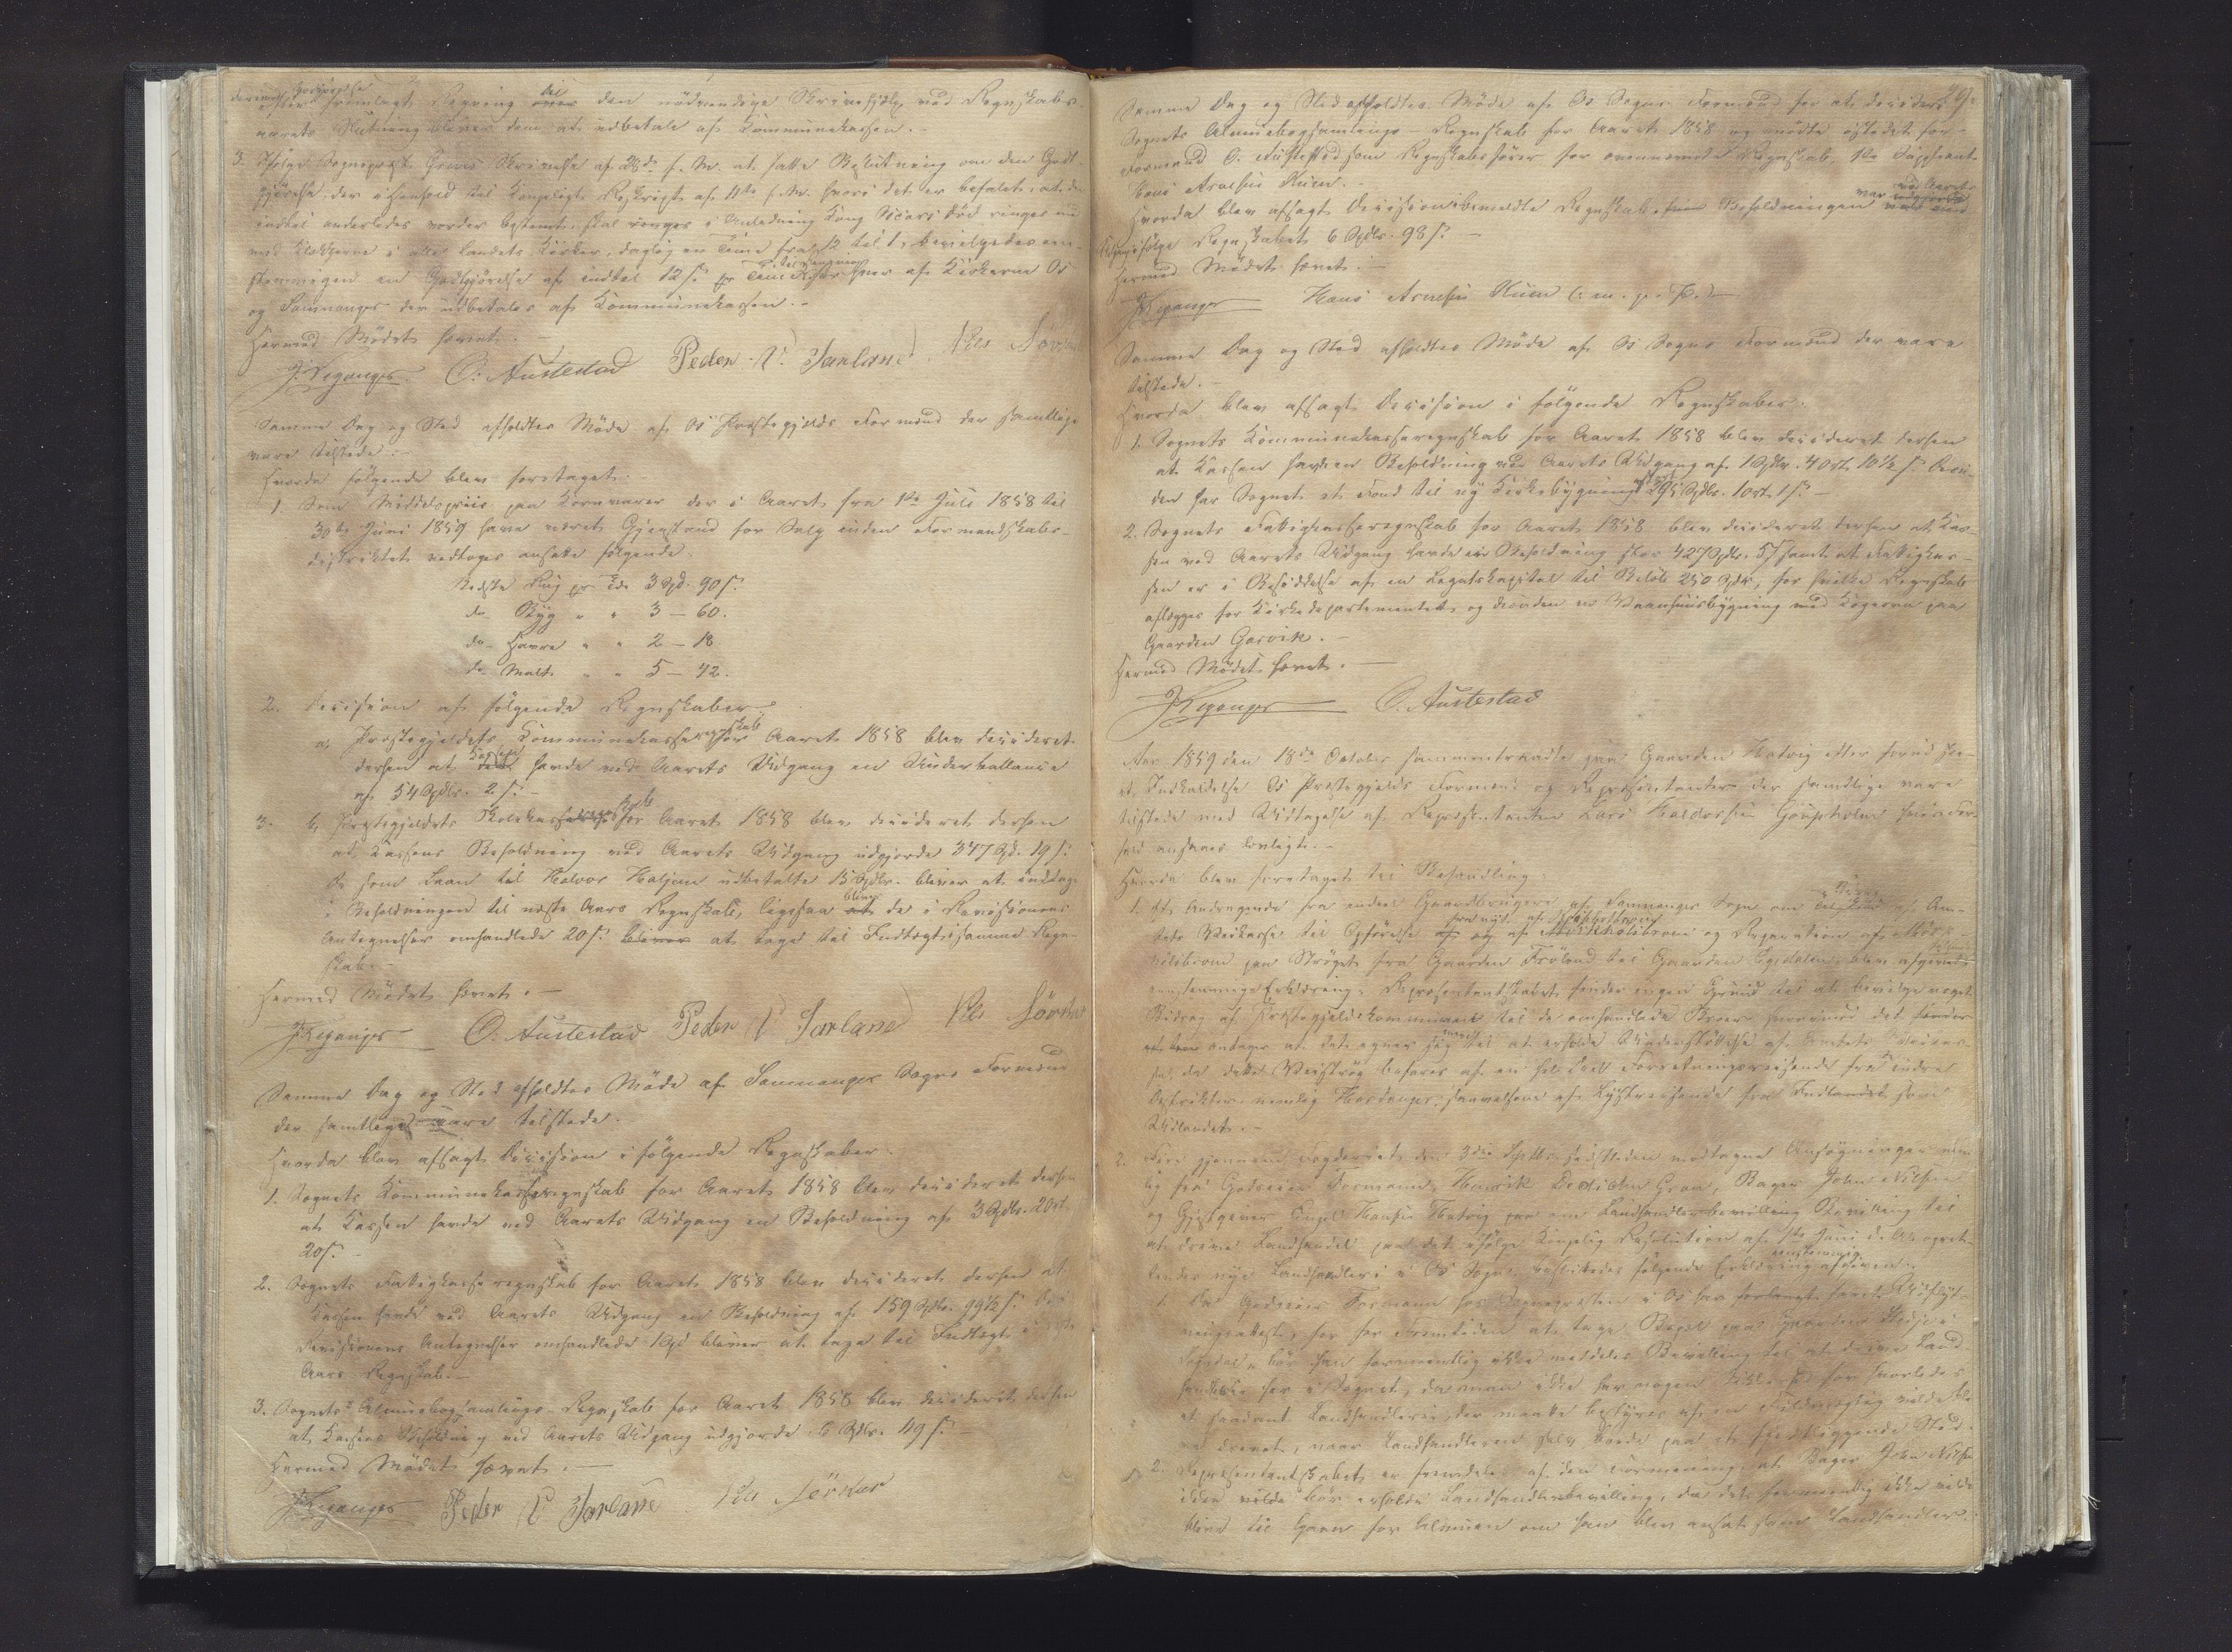 fremlagt Regning over den nödvendige Skrivehjelp ved Regnskabs-
aarets Slutning bliver dem at udbetale af Kommunekassen.-
3. Ifölge Sogneprest Greves Skrivelse af 28de f. M. at fatte Beslutning om den Godt-
gjörelse, der i Henhold til Kongeligt Reskript af 11te f. M. hvori det er befalet, at der
indtil anderledes vorder bestemt, skal ringes i Anledning Kong Oscars Död ringes nu
med Klokkerne i alle Landets Kirker, daglig en Time fra 12 til 1, bevilgedes een-
stemmigen en Godtgjörelse af indtil 12 s. pr Time for hver af Kirkerne Os
og Samnanger der udbetales af Kommunekassen.-
Hermed Mödet hævet.-
J. Leganger. O: Austestad Peder P. Tarlane Nils
Samme Dag og Sted afholdtes Möde af Os Præstegjelds Formænd der samtlige
vare tilstede.-
Hvorda fölgende blev foretaget.
1. Som Middelpriis paa Kornvarer der i Aaret fra 1ste Juli 1858 til
30te Juni 1859 have været Gjenstand for Salg inden Formandskabs-
distriktet vedtoges ansatte fölgende.
Bedste Rug pr Tde 3 Spd. 90 s.
do Byg " " 3 - 60.
do Havre " " 2 - 18
do Malt " " 5 - 42.
2. Decision af fölgende Regnskaber.
a, Præstegjeldets Kommunekasseregnskab for Aaret 1858 blev decideret
derhen at Kassen havde ved Aarets Udgang en Underballance
af 54 Spdlr. 2 s.-
3. b, Præstegjeldets Skolekasseregnskab for Aaret 1858 blev decideret derhen
at Kassens Beholdning ved Aarets Udgang udgjorde 347 Spd. 19 s.
De som Laan til Halvor Haljem udbetalte 15 Spdlr. bliver at indtage
i Beholdningen til næste Aars Regnskab, ligesaa bliver de i Revisionens
Antegnelser omhandlede 20 s. at tage til Indtægt i samme Regn-
skab.-
Hermed Mödet hævet.-
J Leganger O. Austestad Peder P Tarlane Nils
Samme Dag og Sted afholdtes Möde af Samnanger Sogns Formænd
der samtlige vare tilstede.
Hvorda blev afsagt Decision i fölgende Regnskaber.
1. Sognets Kommunekasseregnskab for Aaret 1858 blev decideret derhen
at Kassen havde ved Aarets Udgang en Beholdning af 3 Spdlr. 2 ort
20 s.-
2. Sognets Fattigkasseregnskab for Aaret 1858 blev decideret derhen at
Kassen havde ved Aarets Udgang en Beholdning af 159 Spdlr. 99½ s. De i
Revisionens Antegnelser omhandlede 1 Spd bliver at tage til Indtægt i næste
Aars Regnskab.-
3. Sognets Almuebogsamlings-Regnskab for Aaret 1858 blev decideret derhen
at Kassens Beholdning ved Aarets Udgang udgjorde 6 Spdlr. 49 s.-
Hermed Mödet hævet.-
J Leganger Peder P Tarlane Nils
Samme Dag og Sted afholdtes Möde af Os Sogns Formænd for at decidere
Sognets Almuebogsamlings-Regnskab for Aaret 1858 og mödte istedet for-
Formand O. Austestad som Regnskabsförer for ovennævnte Regnskab, 1ste Suppleant
Hans Arnesen Kuven.-
Hvorda blev afsagt Decision ibemeldte Regnskab Beholdningen var ved Aarets
ifölge Regnskabet 6 Spdlr. 98 s.-
Hermed Mödet hævet.-
J Leganger Hans Arnesen Kuven (: m. p. P.)
Samme Dag og Sted afholdtes Möde af Os Sogns Formænd der vare
tilstede.-
Hvorda blev afsagt Decision i fölgende Regnskaber.
1. Sognets Kommunekasseregnskab for Aaret 1858 blev decideret derhen
at Kassen havde en Beholdning ved Aarets Udgang af 1 Spdlr. 4 ort. 10½ s. Desu-
den har Sognet et Fond til ny Kirkebygning 295 Spdlr. 1 ort 1 s.-
2. Sognets Fattigkasseregnskab for Aaret 1858 blev decideret derhen at Kas-
sen ved Aarets Udgang havde en Beholdning stor 427 Spdlr. 57 s samt at Fattigkas-
sen er i Besiddelse af en Legatskapital til Belöb 250 Spdlr, for hvilke Regnskab
aflægges for Kirkedepartementet, og desuden en Vaanhuusbygning med Kogeovn paa
Gaarden Gaasvik.-
Hermed Mödet hævet.-
J Leganger O. Austestad
Aar 1859 den 18de October sammentraadte paa Gaarden Hatvig efter forud ske-
et Indkaldelse Os Præstegjelds Formænd og Repræsentanter der samtlige vare
tilstede med Undtagelse af Repræsentanten Lars Haldorsen hvis For-
fald ansaaes lovligt.-
Hvorda blev foretaget til Behandling:
1. Et Andragende fra endeel Gaardbrugere af Samnanger Sogn om Bidrag af Am-
tets Veikasse til Opförelse og Reparation af
paa Strøget fra Gaarden Fröland til Gaarden blev afgivet
eenstemmige Erklæring: Repræsentantskabet finder ingen Grund til at bevilge noget
Bidrag af Præstegjeldskommunen til de omhandlede Broer hvorimod det
antager at det egner sig til at erholde Understöttelse af Amtets Veikas-
se, da dette Veiströg befares af en hel Deel Forretningsreisende fra indre
Distrikter nemlig Hardanger, saavelsom af Lystreisende fra Indlandet som
Udlandet.-
2. Fire gjennem Fogderiet den 3die Septbr. sidstleden modtagne Ansögninger nem-
lig fra Godseier Formann, Henrik Grau, Bager John Nilsen
og Gjæstgiver Engel Hansen Hatvig om Bevilling til
at drive Landhandel paa det ifölge Kongelig Resolution af 1ste Juni d. A. opret-
tendes nye Landhandleri i Os Sogn, besluttedes fölgende Erklæring eenstemmig afgiven:
1. Da Godseier Formann hos Sognepresten i Os har Udflyt-
ningsattest, for for Fremtiden at tage Bopæl paa Gaarden
bör han formeentlig ikke meddeles Bevilling til at drive Land-
handel her i Sognet, da man ikke har nogen Sikkerhed for hvorledes
et saadant Landhandleri, der maatte bestyres af en Fuldmægtig vilde bli-
ve drevet, naar Landhandleren selv boede paa et fjerntliggende Sted.
2. Repræsentantskabet er fremdeles af den Formening, at Bager John Nilsen
ikke bör erholde Landhandlerbevilling, da det formeentlig ikke vilde
blive til Gavn for Almuen om han blev ansat som Landhandler.